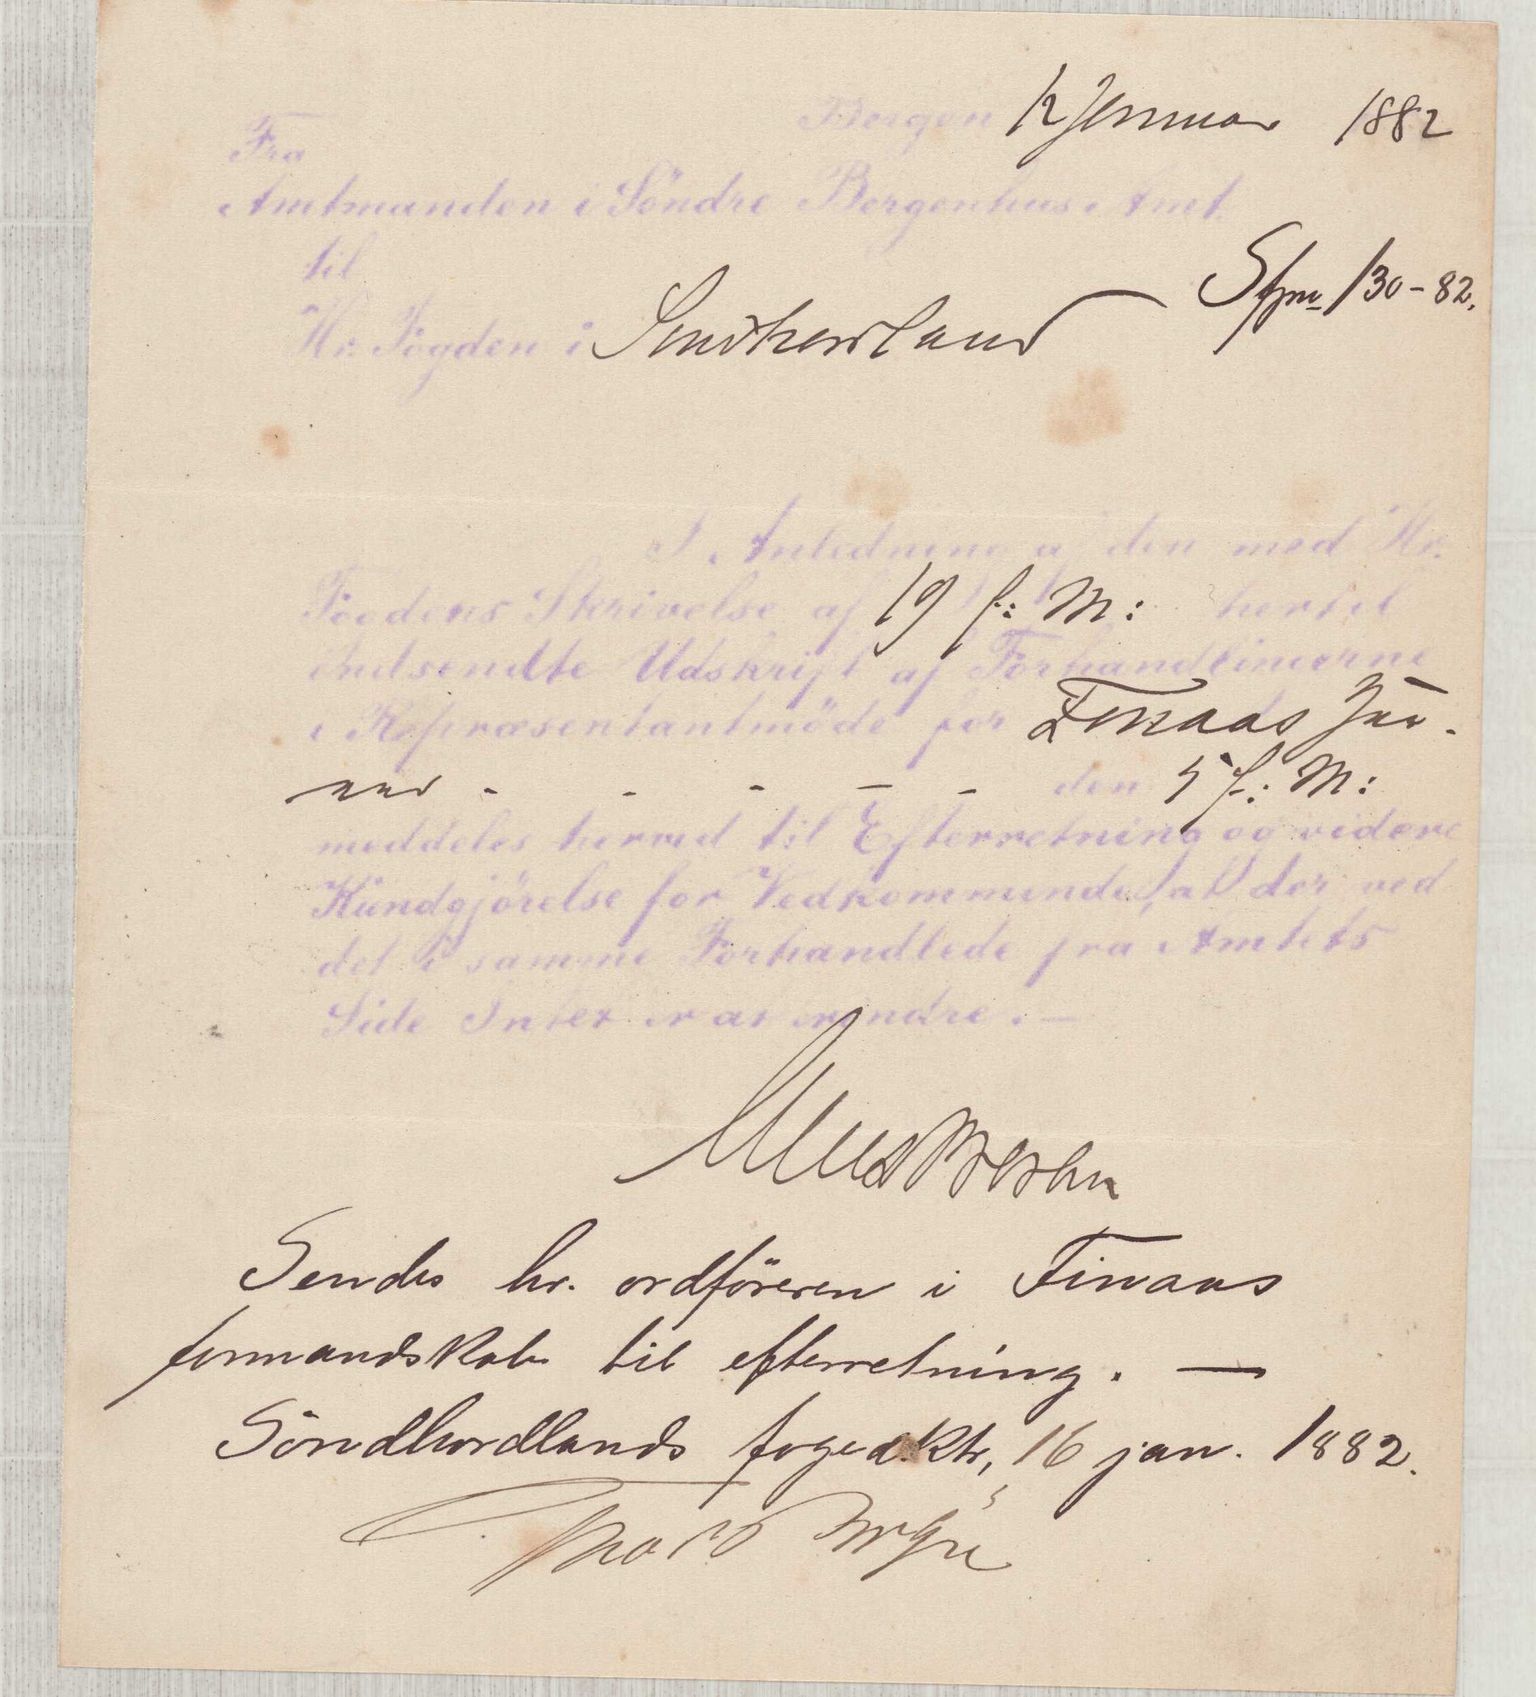 Bergen 12 Januar 1882
Fra
Amtmanden i Söndre Bergenhus Amt
til
Hr. Fogden i Søndhordland
130-82.
I Anledning af den med Hr.
Fogdens Skrivelse af 19 f: M: hertil
indsendte Udskrift af Forhandlingerne
i Repræsentantmöde for Finaas
den 5 f: M:
meddeles herved til Efterretning og videre
Kundgjörelse for Vedkommende, at der ved
det i samme Forhandlede fra Amtets
Side Intet er at erindre. —
Sendes hr. ordföreren i Finaas
formandskab til efterretning. —
Söndhordlands fogedktr, 16 jan. 1882.